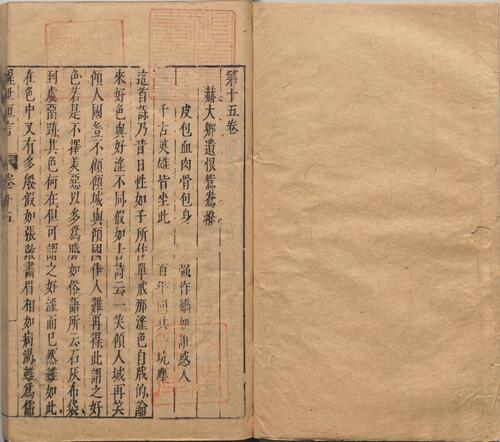 第十五卷
赫大卿遺恨鴛鴦縧
皮包血肉骨包身 強作嬌妍誑惑人
千古英雄皆坐此 百年同共一坑塵
這首詩乃昔日性如子所作單戒那淫色自戕的論
來好色與好淫不同假如古詩云一笑傾人城再笑
傾人國豈不顧傾城與傾國佳人難再得此謂之好
色若是不擇美惡以多為勝如俗語所云石灰布袋
到處留跡其色何在但可謂之好淫而已然雖如此
在色中又有多般假如張敞畫眉相如病渴雖為儒
醒世恒言 卷十五